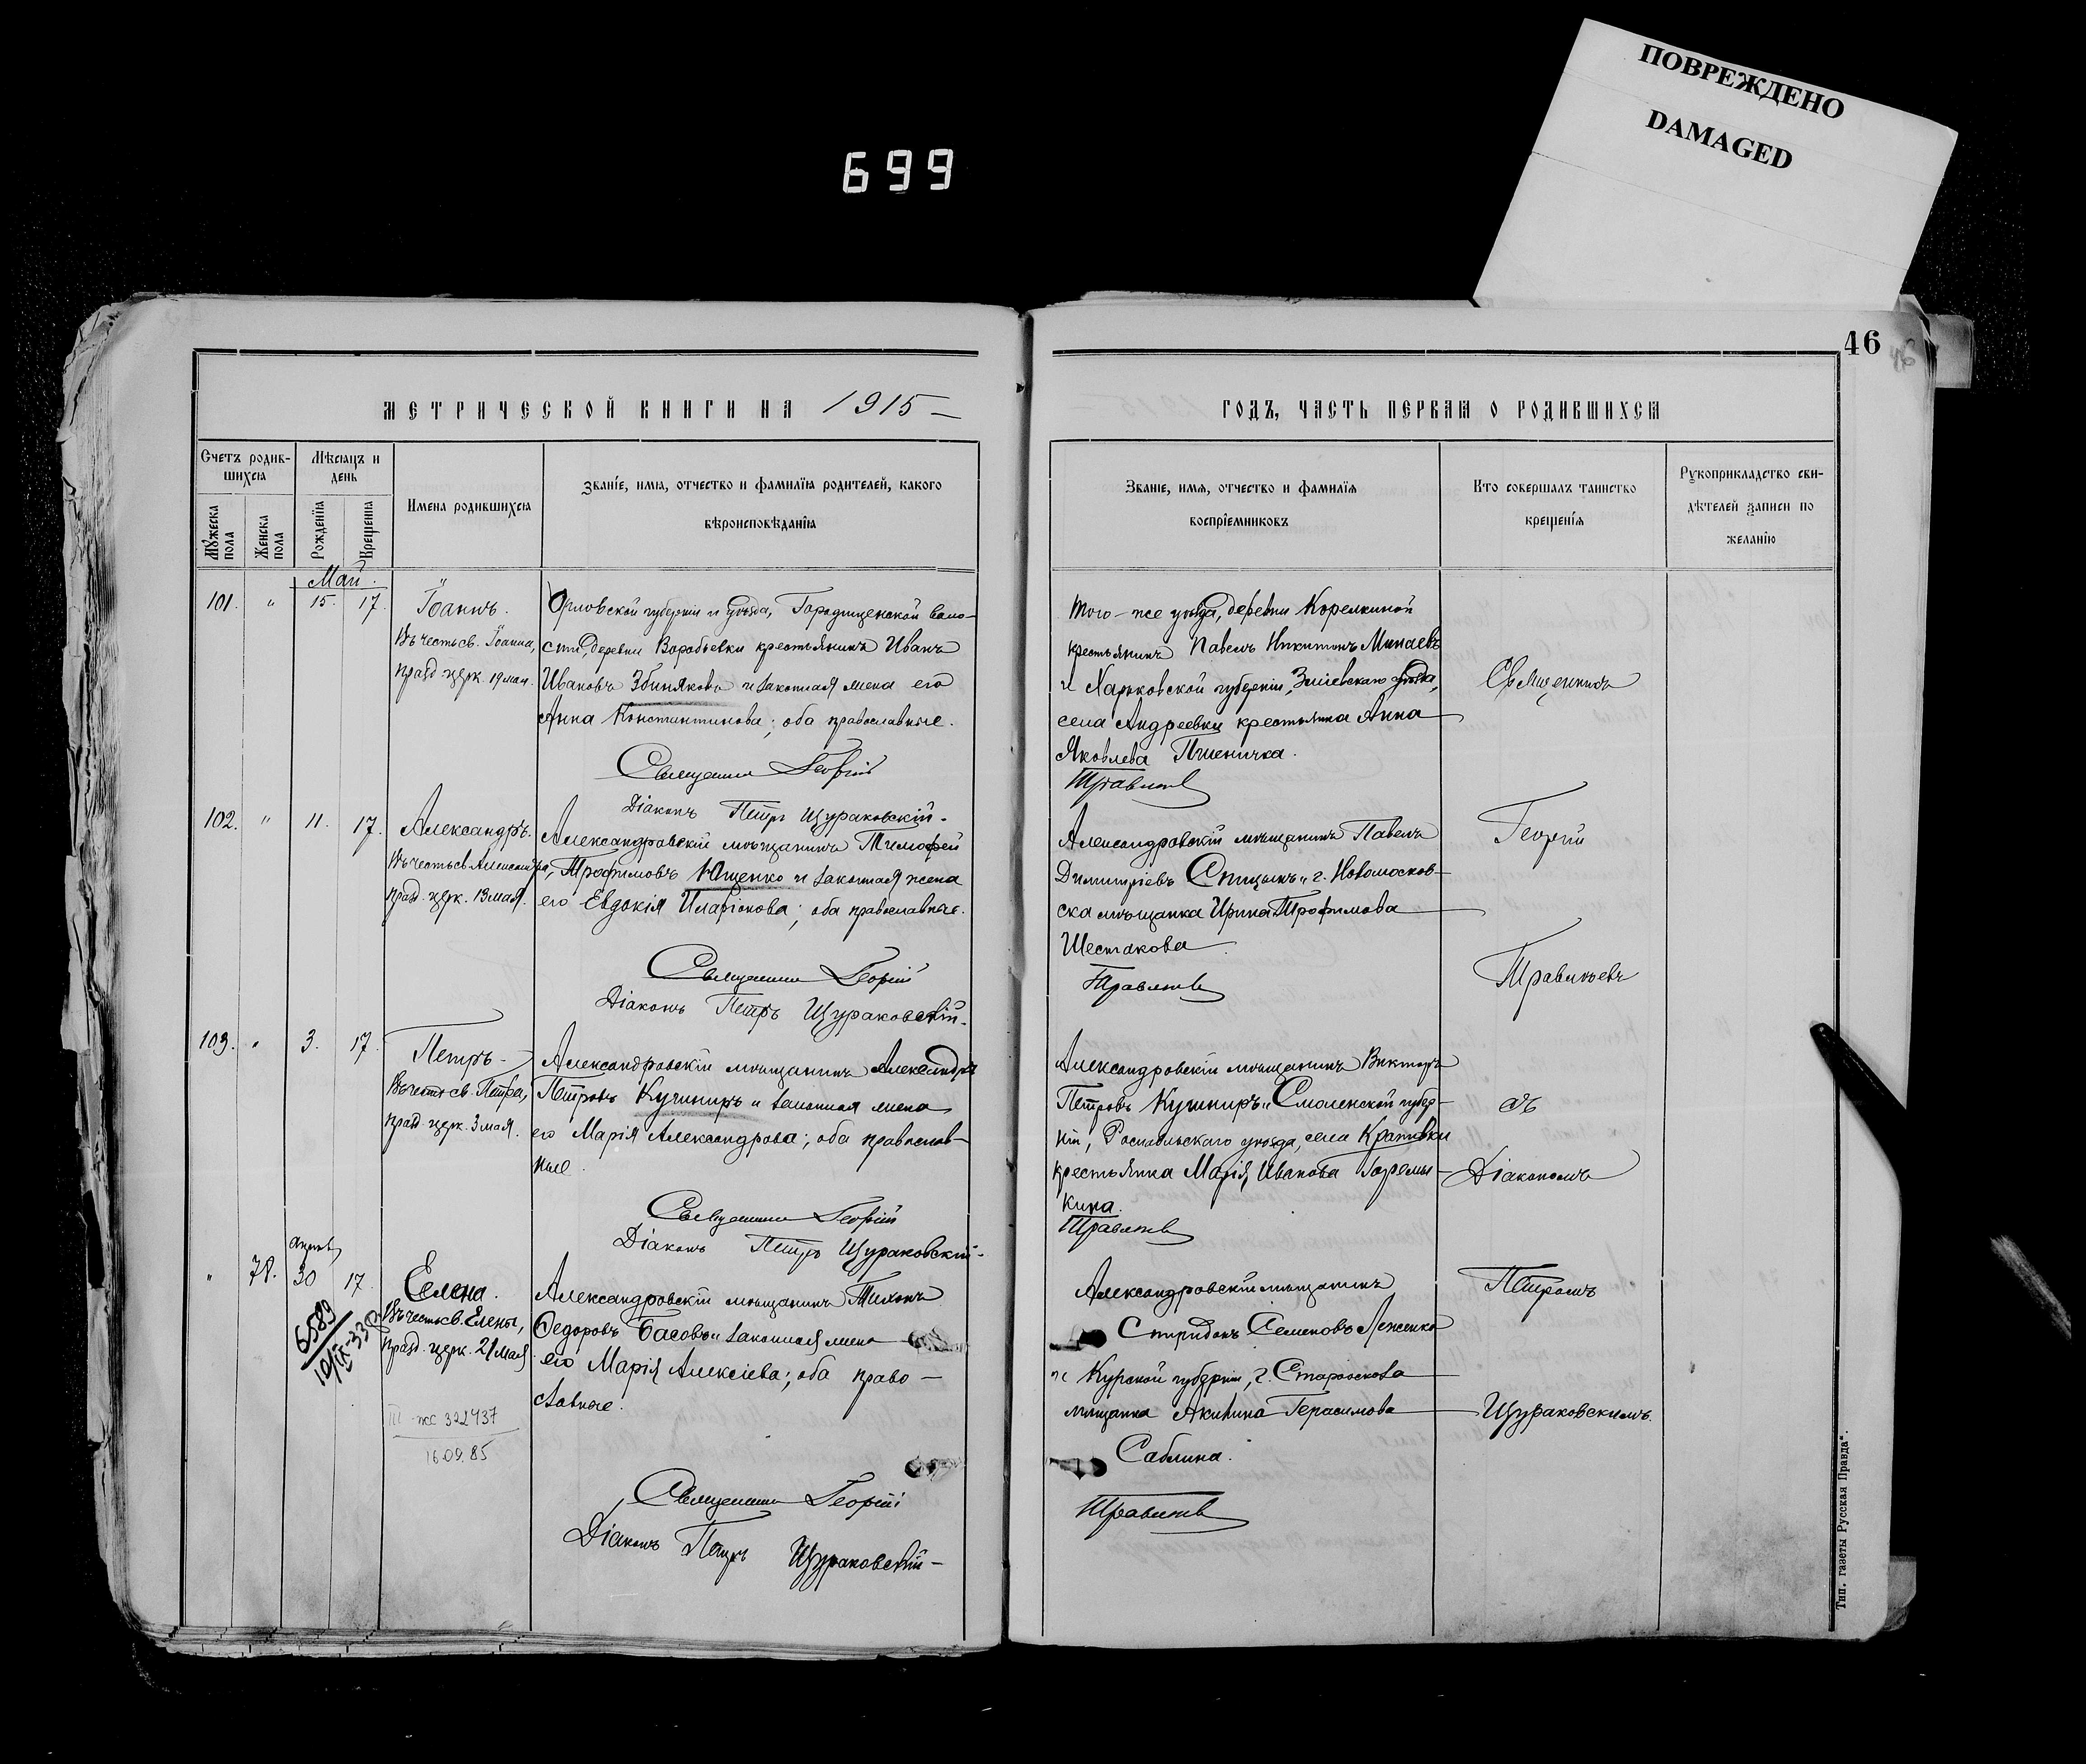 ПОВРЕЖДЕНО
DAMAGED
699
46
МЕТРИЧЕСКОЙ КНИГИ НА 1915
ГОДЪ, ЧАСТЬ ПЕРВАЯ О РОДИВШИХСЯ
Счетъ родив-
шихся
Мужеска пола
Женска пола
Мѣсяцъ и
день
Рожденія
Крещенія
Имена родившихся
Званіе, имя, отчество и фамилія родителей, какого
вѣроисповѣданія
Званіе, имя, отчество и фамилія
воспріемниковъ
Кто совершалъ таинство
крещенія
Рукоприкладство сви-
дѣтелей записи по
желанію
Май.
101. " 15. 17.
Іоаннъ.
Въ честь св. Іоанна,
празд. церк. 19 мая.
Орловской губерніи и уѣзда, Городищенской воло-
сти, деревни Воробьевки крестьянинъ Иванъ
Ивановъ Збиняковъ и законная жена его
Анна Константинова; оба православные.
Священникъ Георгій
Діаконъ Петръ Щураковскій.
Того-же уѣзда, деревни Корелкиной
крестьянинъ Павелъ Никитинъ Минаевъ
и Харьковской губерніи, Зміевскаго уѣзда,
села Андреевки крестьянка Анна
Яковлева Пшеничка.
Травинъевъ
102. " 11. 17.
Александръ.
Въ честь св. Александра,
празд. церк. 13 мая.
Александровскій мѣщанинъ Тимофей
Трофимовъ Ющенко и законная жена
его Евдокія Иларіонова; оба православные.
Священникъ Георгій
Діаконъ Петръ Щураковскій.
Александровскій мѣщанинъ Павелъ
Димитріевъ Спицынъ и г. Новомосков-
ска мѣщанка Ирина Трофимова
Шестакова
103. " 3. 17.
Петръ
Въ честь св. Петра,
празд. церк. 3 мая.
Александровскій мѣщанинъ Александръ
Петровъ Кушниръ и законная жена
его Марія Александрова; оба православ-
ные.
Священникъ Георгій
Діаконъ Петръ Щураковскій.
Александровскій мѣщанинъ Викторъ
Петровъ Кушниръ и Смоленской губер-
ніи, Рославльскаго уѣзда, села Крапивки
крестьянка Марія Иванова Горемы-
кина.
Апрѣль
" 78. 30 17.
6589
Елена.
Въ честь св. Елены,
празд. церк. 21 мая
322437
16.09.85
Александровскій мѣщанинъ Тихонъ
Ѳедоровъ Басовъ и законная жена
его Марія Алексіева; оба право-
славные.
Священникъ Георгій
Діаконъ Петръ Щураковскій
Александровскій мѣщанинъ
Спиридонъ Семеновъ
и Курской губерніи, г. Староскола
мѣщанка Акилина Герасимова
Саблина.
Священникъ
Георгій
Травинъевъ
съ
Діакономъ
Петромъ
Щураковскимъ.
Тип. газеты Русская Правда".